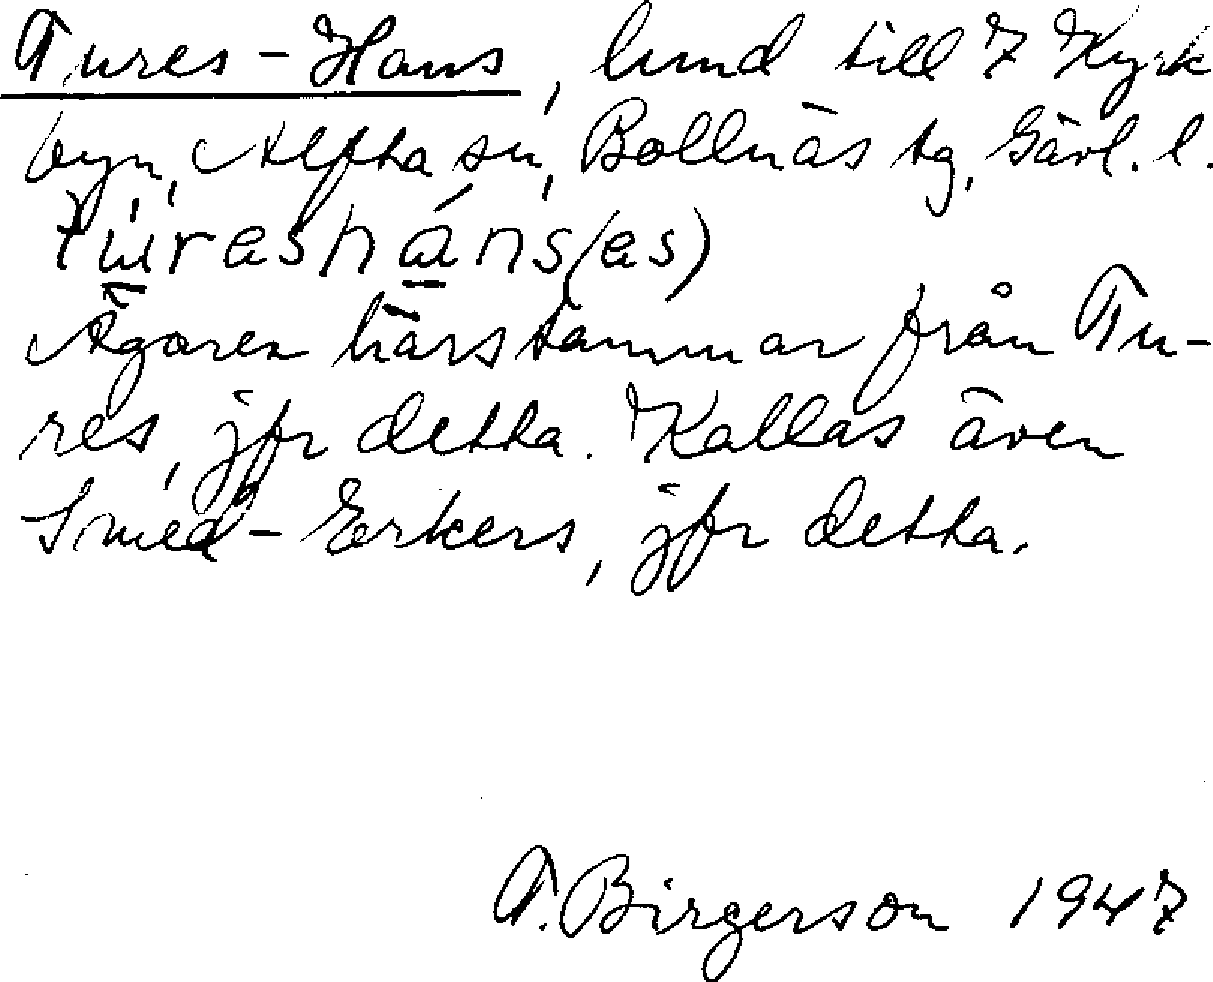 Tures-Hans, lund till 7 Kyrk
byn, Alfta sn, Bollnäs tg, Gävl. l.
túresháns(es)
Ägaren härstammar från Tu-
res, jfr detta. Kallas även
Smed-Erkers, jfr detta.
T. Birgerson 1947